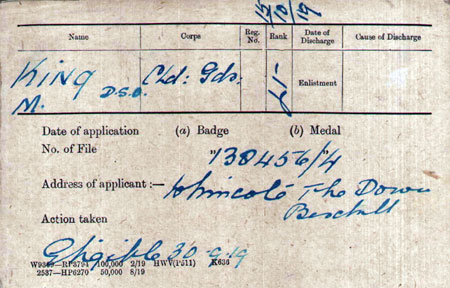 15/10/19
Name Corps Reg. No. Rank Date of Discharge Cause of Discharge
King Cld: Gds: Lt Enlistment
M. D.S.O.
Date of application (a) Badge (b) Medal
No. of File "130456/4
Address of applicant:— The Down
Bexhill
Action taken
Eligible 30-9-19
W9369—RP3794 100,000 2/19 HWV(P511) K636
2537—HP6270 50,000 8/19